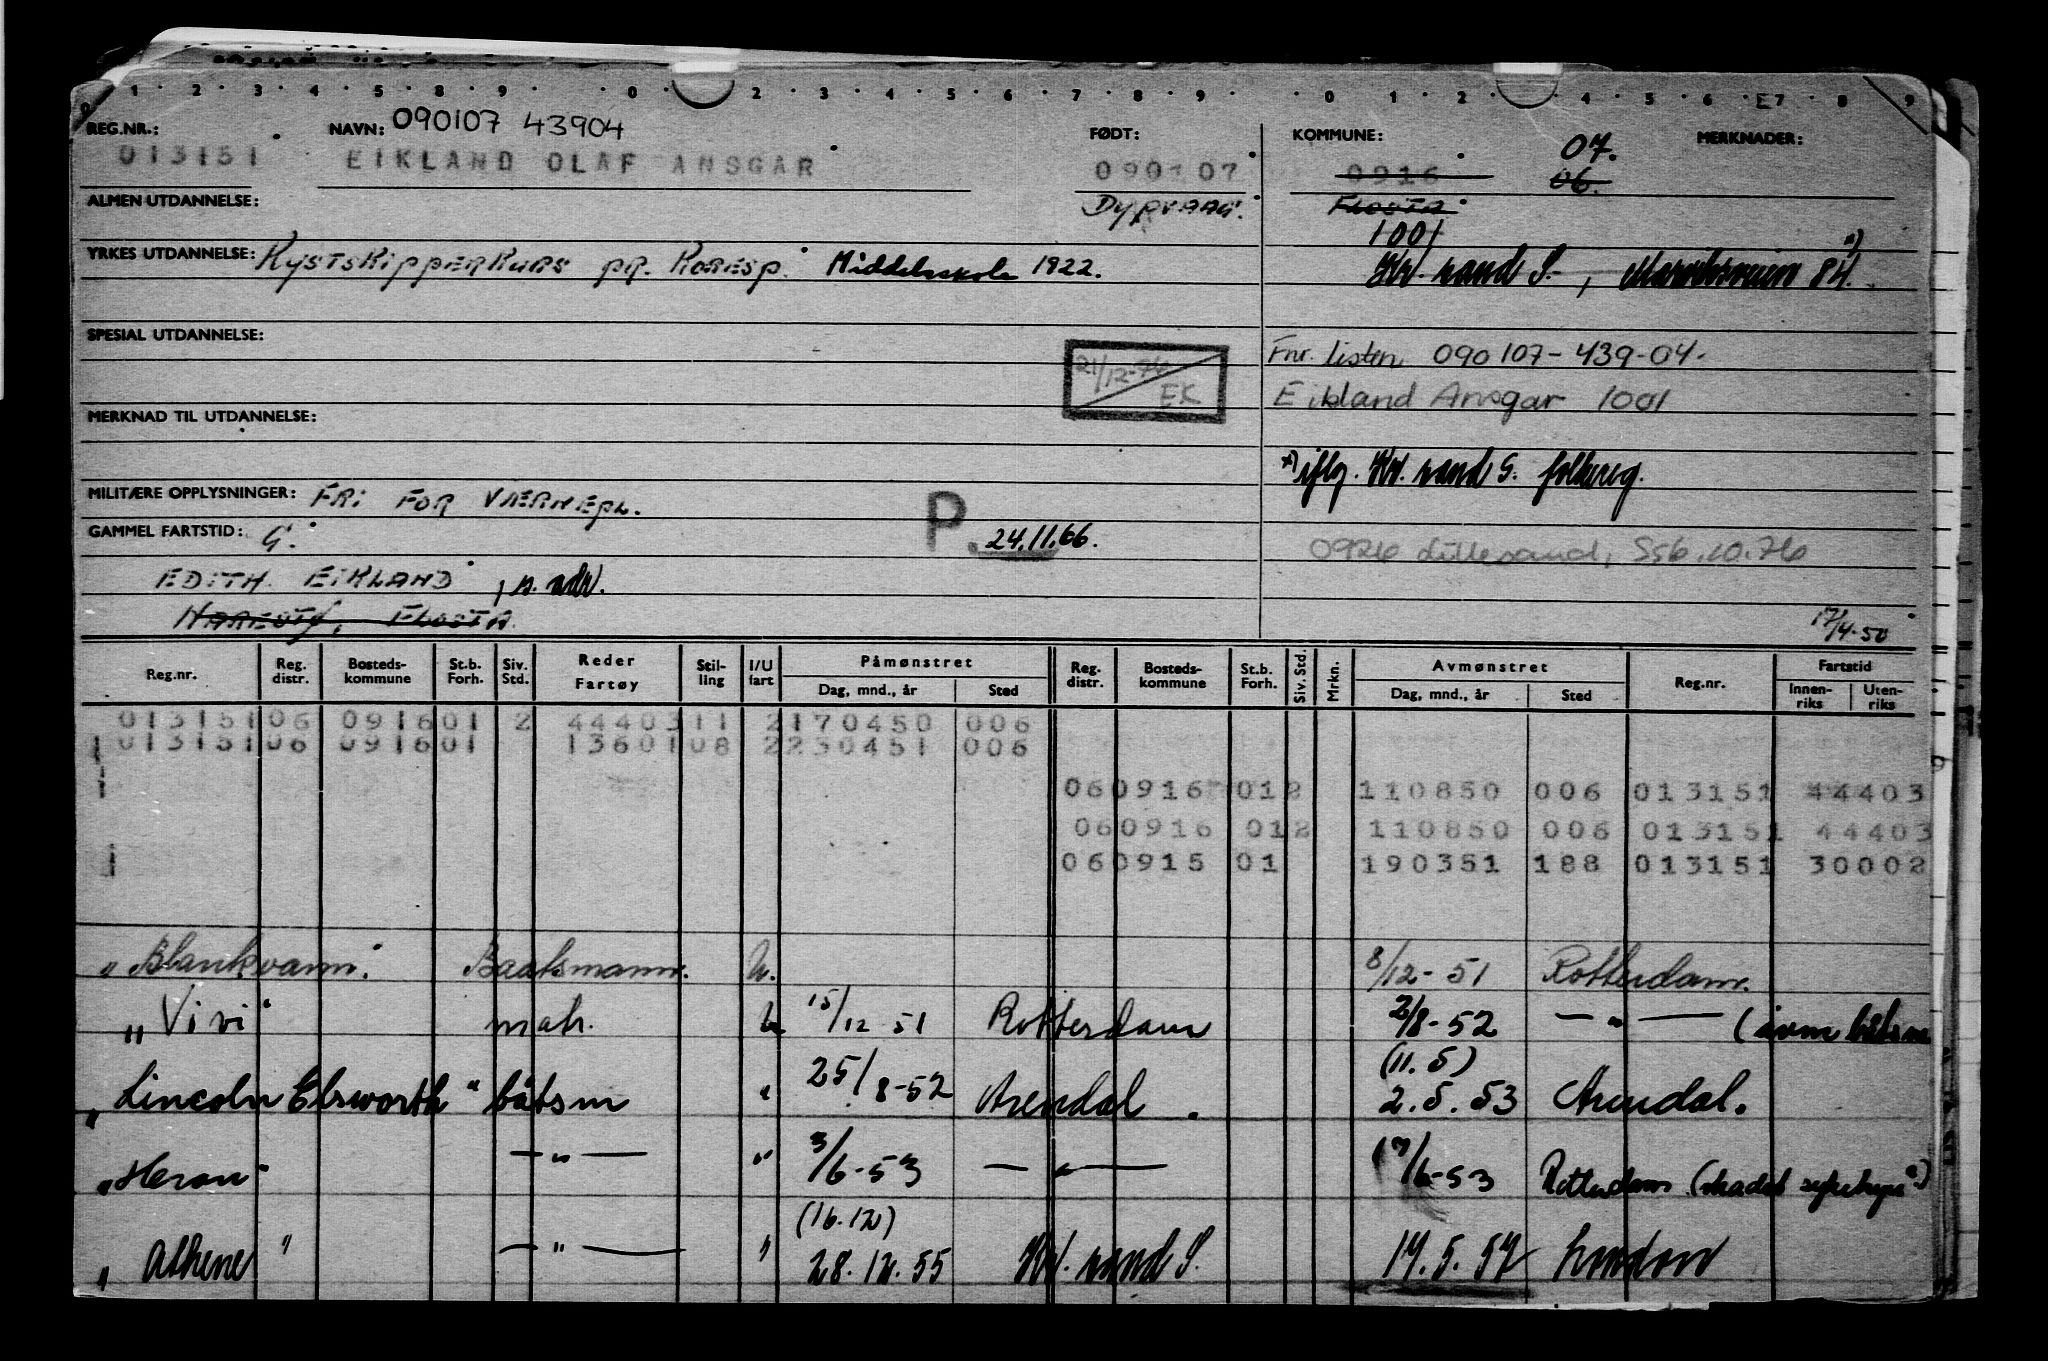 REG.NR.: NAVN: 090107 43904 FØDT: KOMMUNE: 07. MERKNADER:
013151 EIKLAND OLAF ANSGAR 090107 0916 06.
ALMEN UTDANNELSE: Dypvaag. Flosta
1001
YRKES UTDANNELSE: Kystskipperkurs pr. Koresp. Middelsskole 1922. Kr. sand S.,
SPESIAL UTDANNELSE:
21/12-76 EK Fnr. listen 090107-439-04.
Eikland Ansgar 1001
MERKNAD TIL UTDANNELSE:
*) iflg. Kr. sand S. folkereg.
MILITÆRE OPPLYSNINGER: FRI FOR VÆRNEPL.
GAMMEL FARTSTID: G. P. 24.11.66.
0926 Lillesand, 10.76
EDITH EIKLAND, s. adr.
FLOSTA 17/4-50
Reg.nr. Reg. distr. Bosteds-kommune St.b. Forh. Siv. Std. Reder Fartøy Stil-ling I/U fart Påmønstret Dag, mnd., år Sted Reg. distr. Bosteds-kommune St.b. Forh. Siv. Std. Mrkn. Avmønstret Dag, mnd., år Sted Reg.nr. Fartstid Innen-riks Uten-riks
013151 06 0916 01 2 44403 11 2 170450 006
013151 06 0916 01 13601 08 2 230451 006
06 0916 01 2 110850 006 013151 44403
06 0916 01 2 110850 006 013151 44403
06 0915 01 190351 188 013151 30002
"Blankvann" Baatsmann. U. 8/12-51 Rotterdam.
"Vivi" matr. U 15/12 51 Rotterdam 2/8-52 — " — (avm båtsm
"Lincoln Elsworth" båtsm " 25/8-52 Arendal. (11.5) 2.5.53 Arendal.
"Heron" — " — " 3/6-53 — " — 17/6-53 Rotterdam (skadet
"Athene" — " — " (16.12) 28.12.55 Kr. sand S. 14.5.57 London